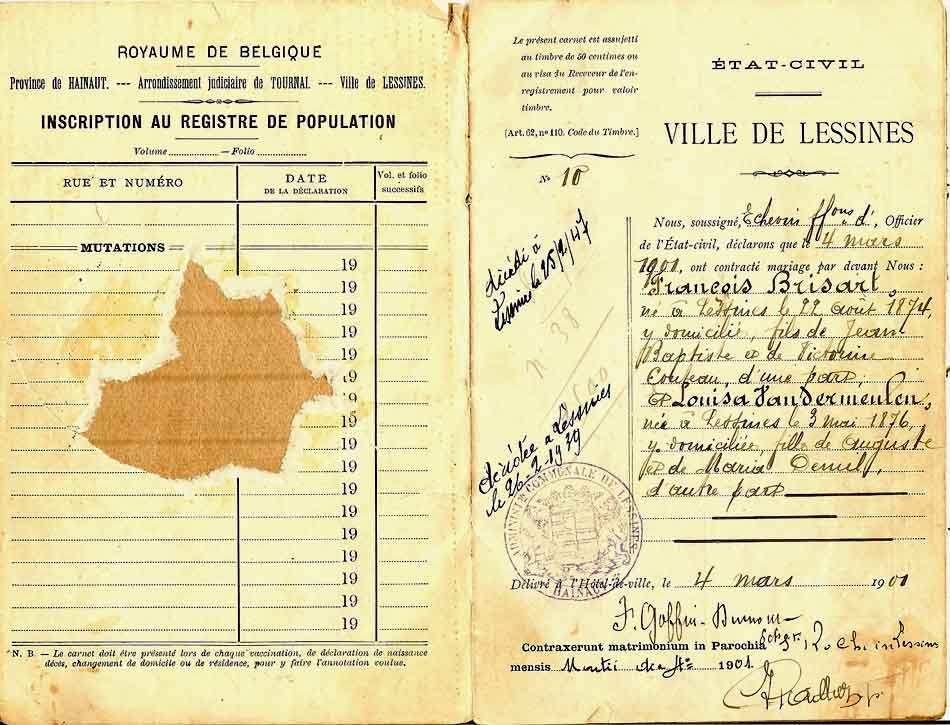 ROYAUME DE BELGIQUE
Province de HAINAUT. --- Arrondissement judiciaire de TOURNAI. --- Ville de LESSINES.
INSCRIPTION AU REGISTRE DE POPULATION
Volume .......... — Folio ..........
RUE ET NUMÉRO
DATE
DE LA DÉCLARATION
Vol. et folio
successifs
MUTATIONS
19
19
19
19
19
19
19
19
19
19
19
19
19
19
19
19
N. B. — Le carnet doit être présenté lors de chaque vaccination, de déclaration de naissance
décès, changement de domicile ou de résidence, pour y faire l'annotation voulue.
Le présent carnet est assujetti
au timbre de 50 centimes ou
au visa du Receveur de l'en-
registrement pour valoir
timbre.
[Art. 62, nº 110. Code du Timbre.]
Nº 10
décédé à
Lessines le 25/2/47
Nº 38
décédée à Lessines
le 26-2-1939
ÉTAT-CIVIL
VILLE DE LESSINES
Nous, soussigné, Echevin ffons d', Officier
de l'État-civil, déclarons que le 4 mars
1901, ont contracté mariage par devant Nous :
François Brisart,
né à Lessines le 22 août 1874,
y domicilié, fils de Jean
Baptiste et de Victorine
Coupeau, d'une part,
et Louisa Vandermeulen,
née à Lessines le 3 mai 1876,
y domiciliée, fille de Auguste
et de Maria
d'autre part
COMMUNALE DE LESSINES
HAINAUT
Délivré à l'Hôtel-de-ville, le 4 mars 1901
F. Goffin-
Contraxerunt matrimonium in Parochia Rochi in Lessines
mensis 1901.